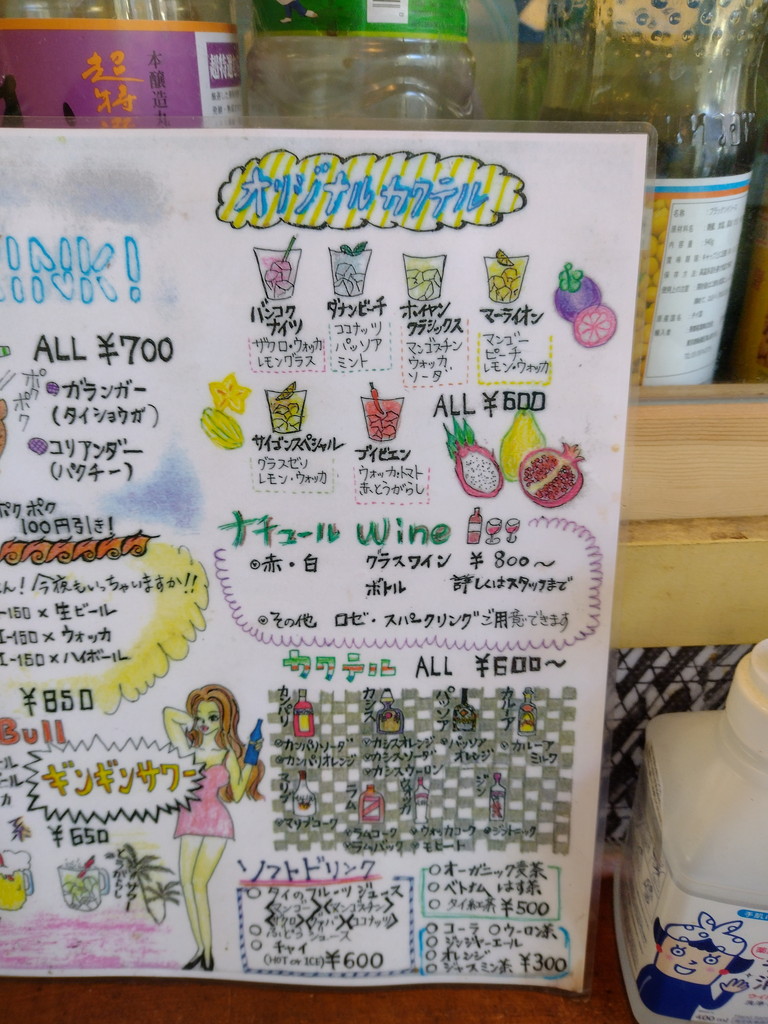 本醸造
超特選
オリジナルカクテル
INK!
ALL ¥700
ポクポク
ガランガー
(タイショウガ)
コリアンダー
(パクチー)
ポクポク
100円引き!
ん! 今夜もいっちゃいますか!!
-150 × 生ビール
I-150 × ウォッカ
I-150 × ハイボール
¥850
Bull
ギンギンサワー
系 ¥650
バンコクナイツ
ザクロ・ウォッカ
レモングラス
ダナンビーチ
ココナッツ
パッソア
ミント
ホイアン
クラシックス
マンゴスチン
ウォッカ
ソーダ
マーライオン
マンゴー
ピーチ
レモン・ウォッカ
サイゴンスペシャル
レモン・ウォッカ
ウォッカ・トマト
赤とうがらし
ALL ¥600
ナチュール Wine
赤・白 グラスワイン ¥800〜
ボトル 詳しくはスタッフまで
その他 ロゼ・スパークリングご用意できます
カクテル ALL ¥600〜
カンパリ
カシス
パッソア
カルーア
カンパリソーダ
カンパリオレンジ
カシスオレンジ
カシスソーダ
カシスウーロン
パッソア
オレンジ
カルーア
ミルク
マリブ
ラム
ウォッカ
ジン
マリブコーク
ラムコーク
ラムバック
ウォッカコーク
モヒート
ジントニック
ソフトドリンク
タイのフルーツジュース
マンゴー マンゴスチン
ザクロ グァバ ココナッツ
ぶどうジュース
チャイ
(HOT or ICE) ¥600
オーガニック麦茶
ベトナム はす茶
タイ紅茶 ¥500
コーラ ウーロン茶
ジンジャーエール
オレンジ
ジャスミン茶 ¥300
名称
原材料名
内容量
賞味期限
保存方法
原産国名
輸入者
400ml